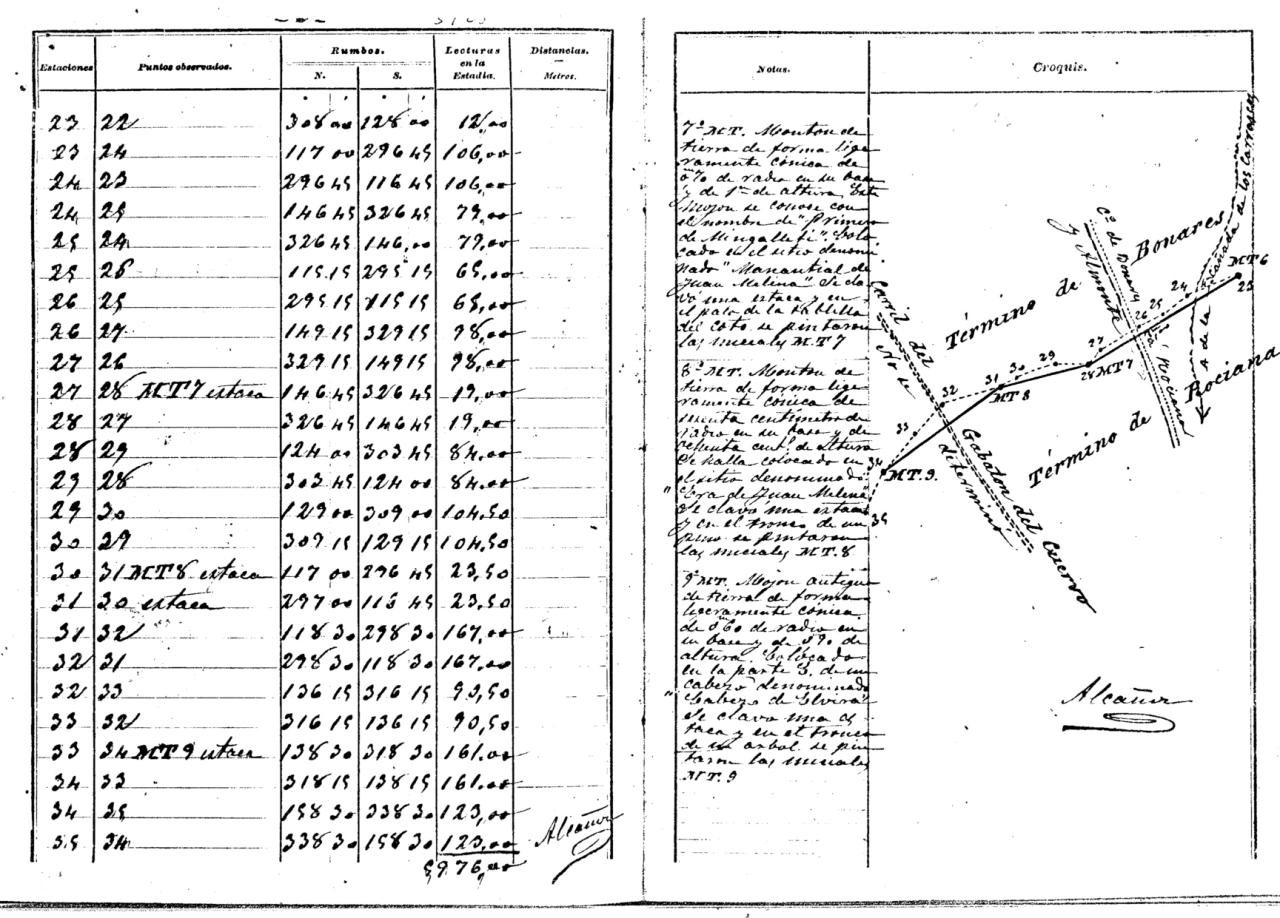 Estaciones Puntos observados. Rumbos. N. S. Lecturas en la Estadia. Distancias. — Metros.
23 22 308 00 128 00 12,00
23 24 117 00 296 45 106,00
24 23 296 45 116 45 106,00
24 25 146 45 326 45 79,00
25 24 326 45 146,00 79,00
25 26 115 15 295 15 65,00
26 25 295 15 115 15 65,00
26 27 149 15 329 15 98,00
27 26 329 15 149 15 98,00
27 28 MT7 estaca 146 45 326 45 19,00
28 27 326 45 146 45 19,00
28 29 124 00 303 45 84,00
29 28 303 45 124 00 84,00
29 30 129 00 309 00 104,50
30 29 309 15 129 15 104,50
30 31 MT8 estaca 117 00 296 45 23,50
31 30 estaca 297 00 116 45 23,50
31 32 118 30 298 30 167,00
32 31 298 30 118 30 167,00
32 33 136 15 316 15 90,50
33 32 316 15 136 15 90,50
33 34 MT9 estaca 138 30 318 30 161,00
34 33 318 15 138 15 161,00
34 35 158 30 338 30 123,00
35 34 338 30 158 30 123,00
5976,00
Alcañiz
Notas.
7º MT. Monton de
tierra de forma lige
ramente cónica de
de radio en su base
y de 1m de altura. Este
mojon se conoce con
el nombre de "Primero
de Mingallete". Colo
cado en el sitio denomi
nado "Manantial de
Juan Melena" Se cla
vó una estaca y en
el palo de la tablilla
del coto se pintaron
las iniciales MT7
8º MT. Monton de
tierra de forma lige
ramente cónica de
centímetros de
radio en su base y de
centº de altura
Se halla colocado en
el sitio denominado
"Era de Juan Melena"
Se clavó una estaca
y en el tronco de un
pino se pintaron
las iniciales MT.8
9º MT. Mojon antiguo
de tierra de forma
cónica
de 0m60 de radio en
su base y de 0m90 de
altura. Colocado
en la parte S. de un
cabezo denominado
"Cabezo de Elvira"
Se clavó una es-
taca y en el tronco
de un arbol se pin
taron las iniciales
MT.9
Croquis.
Cañada de los Carrascales
Cº de Bonares
y Almonte
Término de Bonares
MT6
23
24
25
26
27
28 MT7
29
30
31
MT8
32
33
34
MT.9.
35
A de la
á Rociana
Término de Rociana
Carril del
Gabaton del Cuervo
No se
determinó
Alcañiz